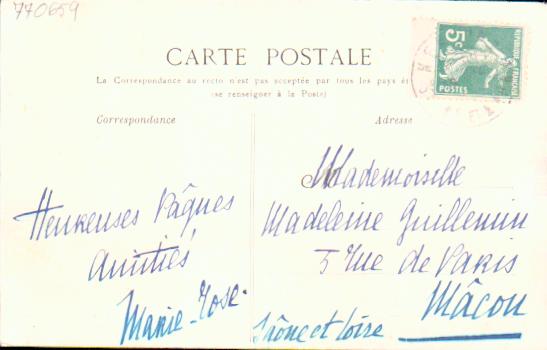 770659
CARTE POSTALE
La Correspondance au recto n'est pas acceptée par tous les pays
(se renseigner à la Poste)
Correspondance
Adresse
5c
REPUBLIQUE FRANÇAISE
POSTES
Heureuses Pâques
amitiés
Marie-Rose.
Mademoiselle
Madeleine Guillemin
5 Rue de Paris
Mâcon
Saône et Loire